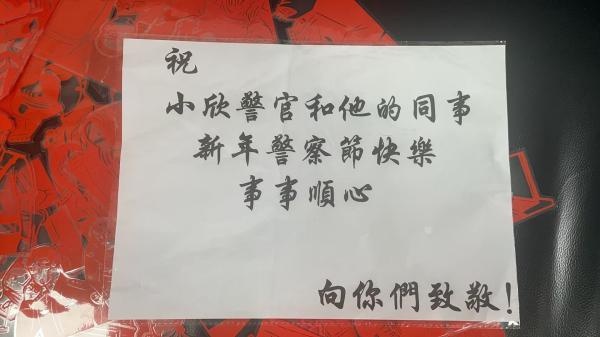 祝
小欣警官和他的同事
新年警察節快樂
事事順心
向你們致敬!